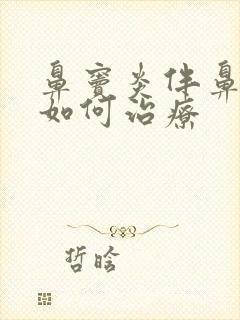 鼻窦炎伴鼻
如何治疗
哲晗